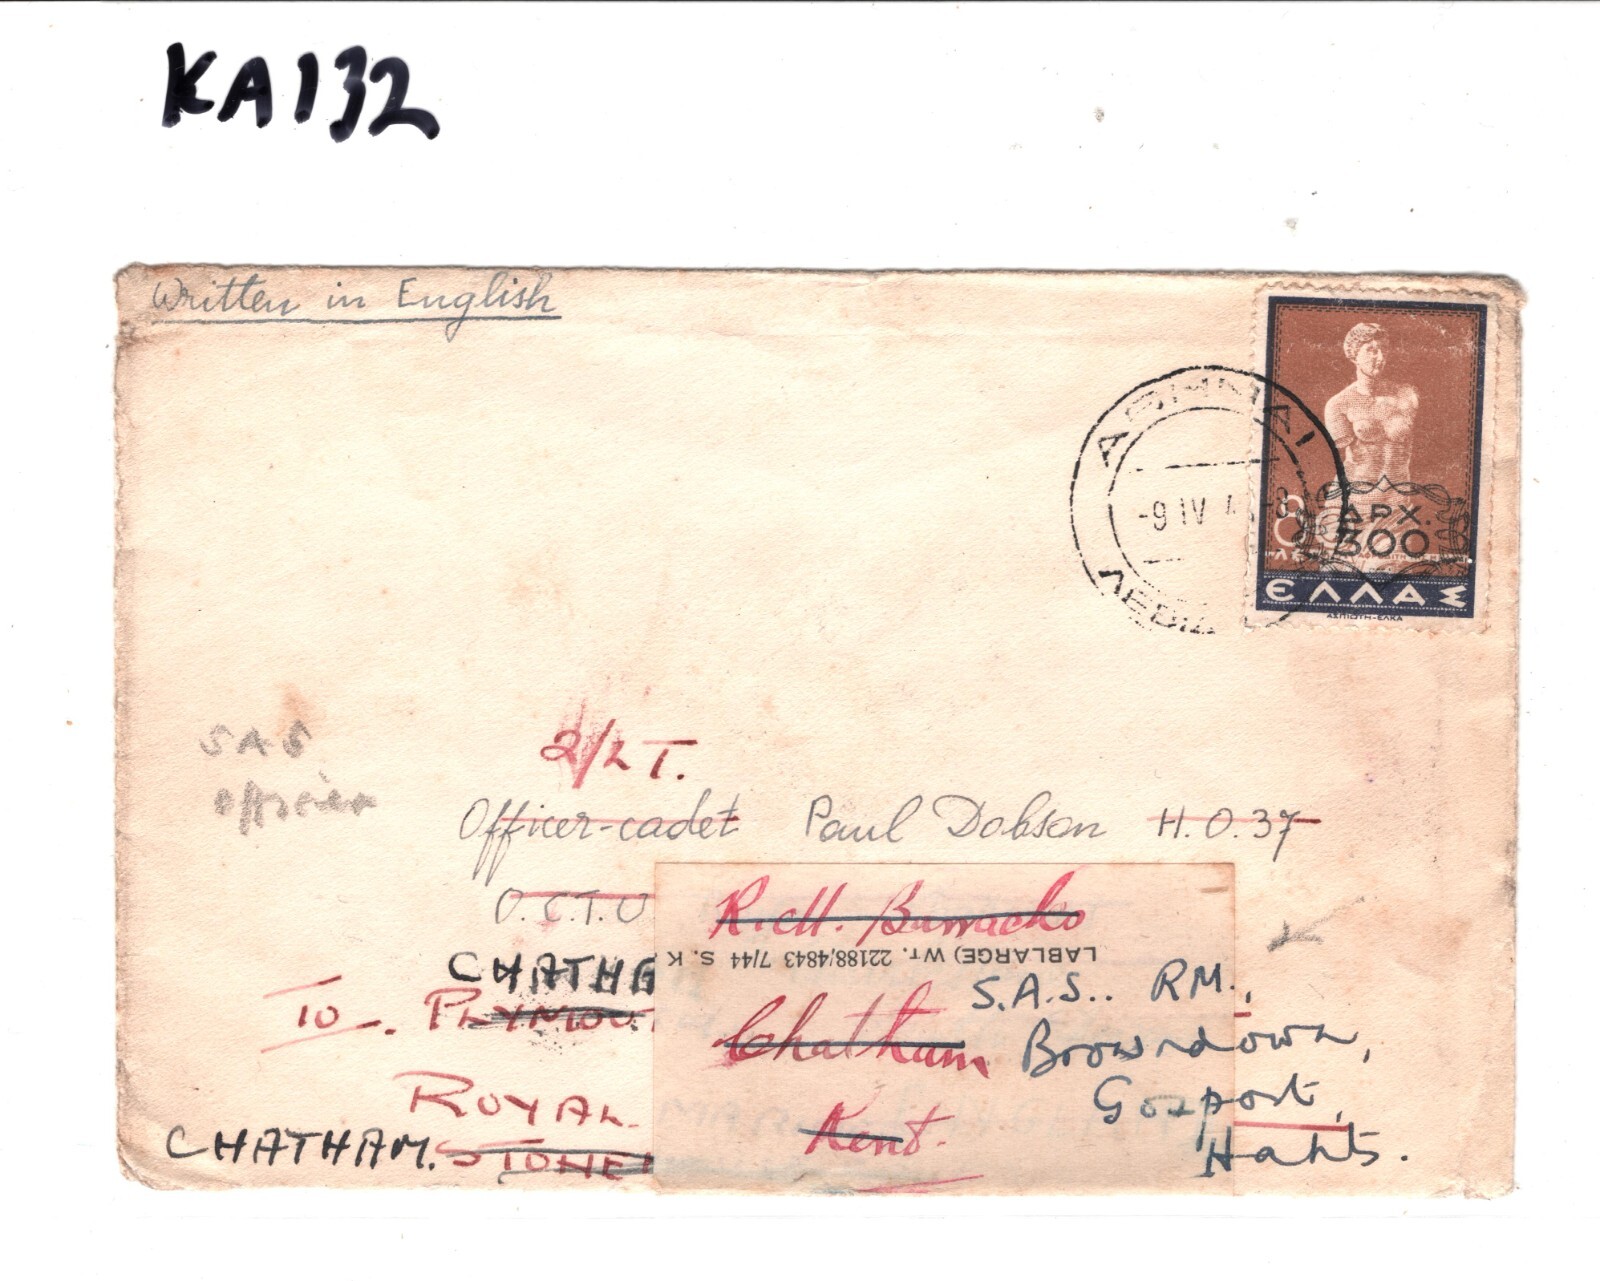 KA132
Written in English
ΑΘΗΝΑΙ
-9 IV 4 -8
8
ΔΡΧ.
500
ΕΛΛΑΣ
ΑΣΠΙΩΤΗ-ΕΛΚΑ
SAS
officer
2/LT.
Officer-cadet Paul Dobson H.O.37
O.C.T.U
R.M. Barracks
LABLARGE) WT. 22188/4843 7/44 S. K
CHATHA
S.A.S.. RM.,
TO. PLYMOU
Chatham Browndown,
ROYAL
Gosport,
CHATHAM. STONE
Kent. Hants.